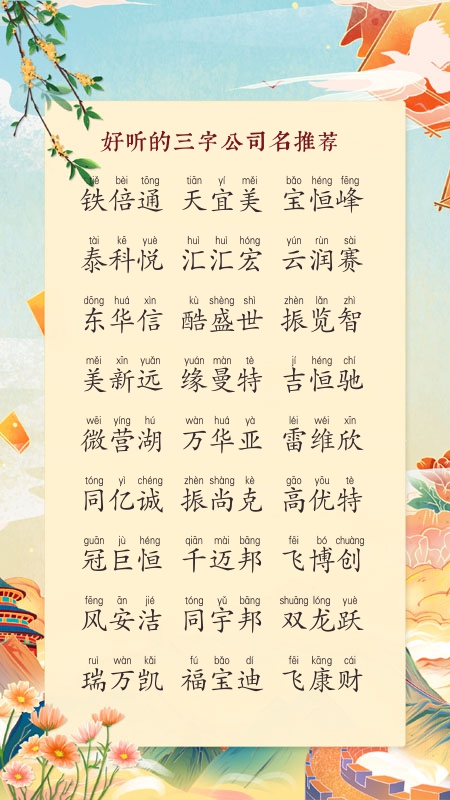 好听的三字公司名推荐
tiě bèi tōng tiān yí měi bǎo héng fēng
铁倍通 天宜美 宝恒峰
tài kē yuè huì huì hóng yún rùn sài
泰科悦 汇汇宏 云润赛
dōng huá xìn kù shèng shì zhèn lǎn zhì
东华信 酷盛世 振览智
měi xīn yuǎn yuán màn tè jí héng chí
美新远 缘曼特 吉恒驰
wēi yíng hú wàn huá yà léi wéi xīn
微营湖 万华亚 雷维欣
tóng yì chéng zhèn shàng kè gāo yōu tè
同亿诚 振尚克 高优特
guān jù héng qiān mài bāng fēi bó chuàng
冠巨恒 千迈邦 飞博创
fēng ān jié tóng yǔ bāng shuāng lóng yuè
风安洁 同宇邦 双龙跃
ruì wàn kǎi fú bǎo dí fēi kāng cái
瑞万凯 福宝迪 飞康财